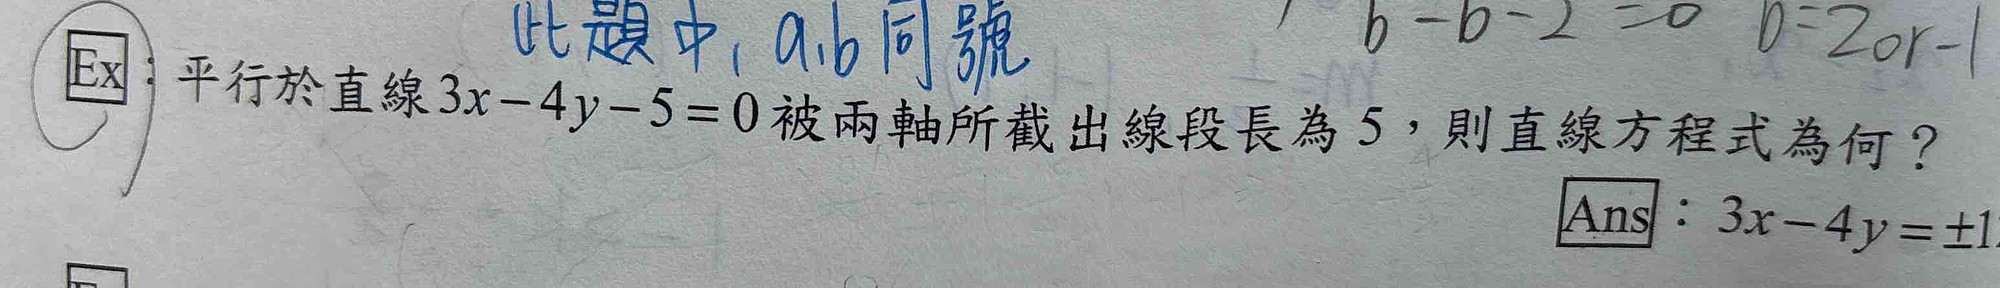 此題中, a,b同號
b-b-2=0 b=2or-1
Ex：平行於直線3x-4y-5=0被兩軸所截出線段長為5，則直線方程式為何？
Ans：3x-4y=±1